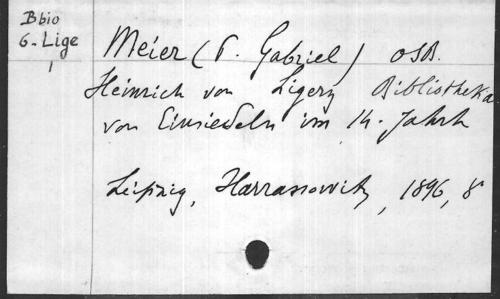 Bbio
6. Lige
1
Meier (P. Gabriel) OSB.
Heinrich von Ligerz Bibliotheka
von Einsiedeln im 14. Jahrh
Leipzig, Harrassowitz, 1896, 8°